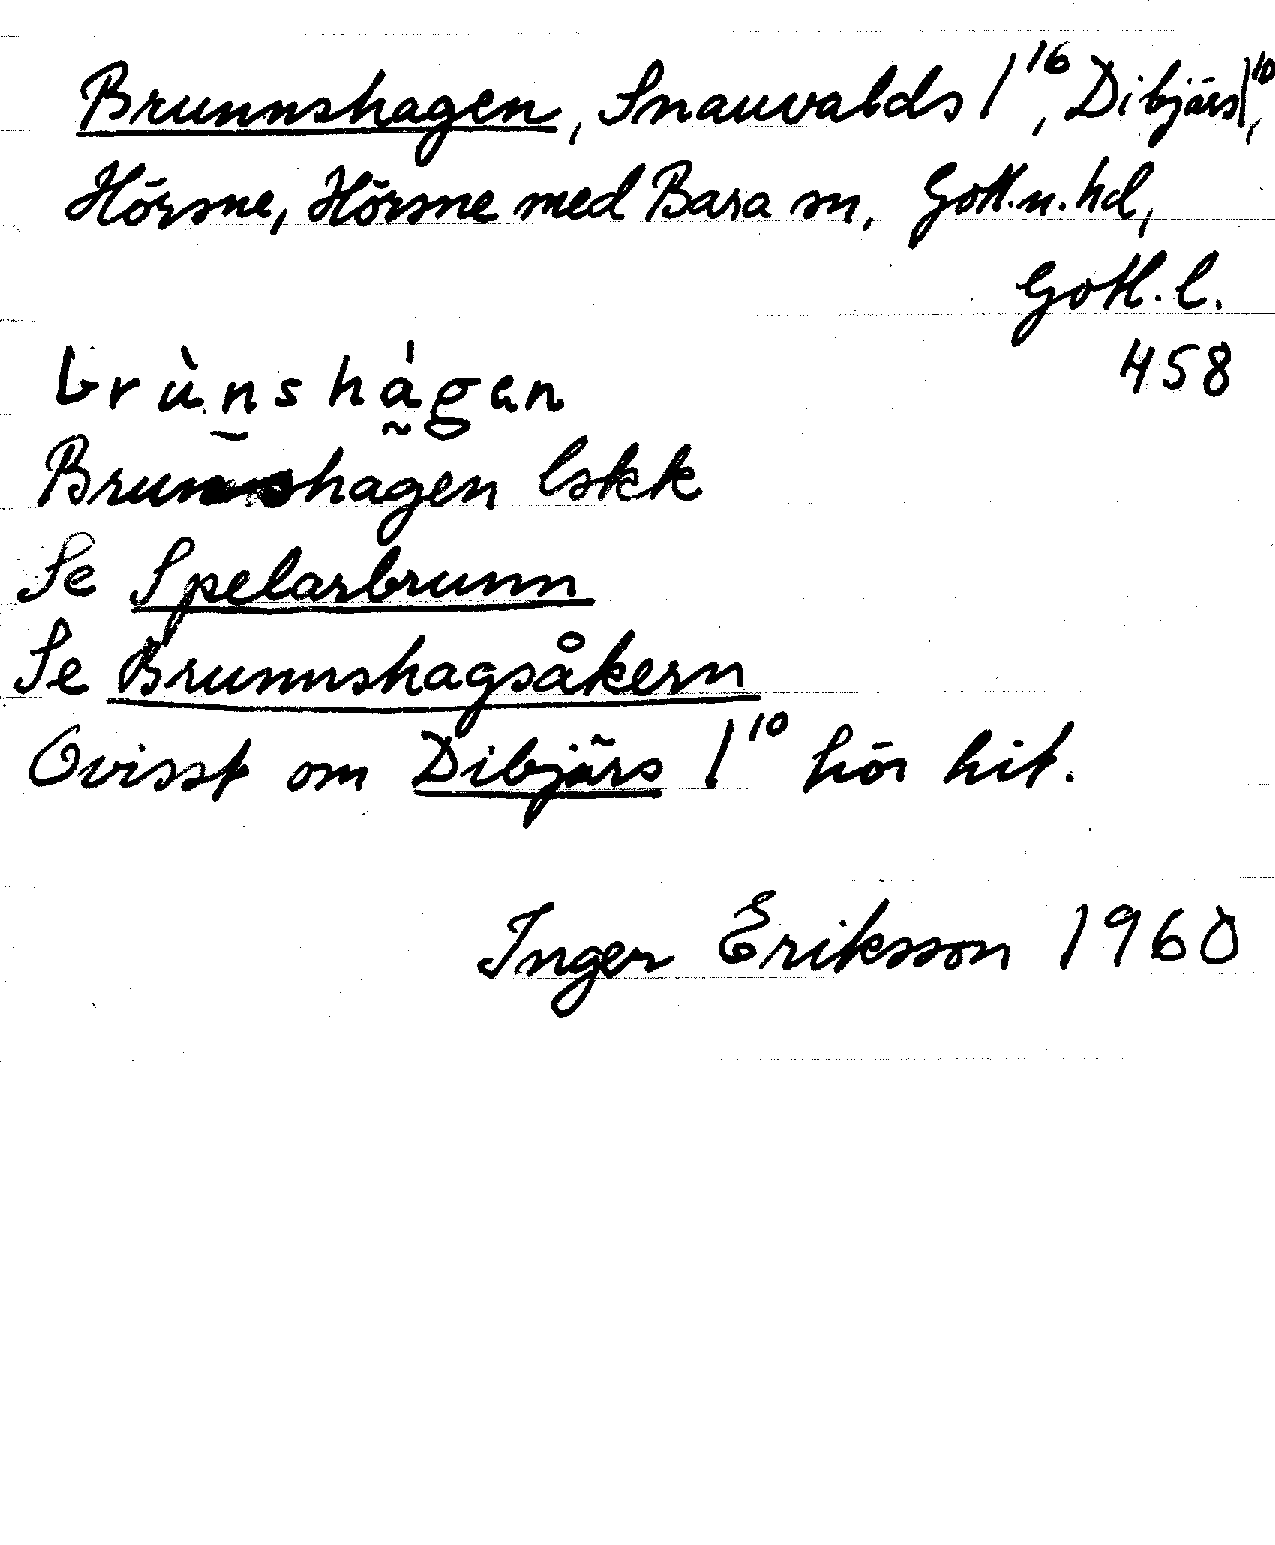 Brunnshagen, Snauvalds 1¹⁶, Dibjärs 1¹⁰,
Hörsne, Hörsne med Bara sn, Gotl.n.hd,
Gotl.l.
458
brùn̠shág̰en
Brunnshagen lskk
Se Spelarbrunn
Se Brunnshagsåkern
Ovisst om Dibjärs 1¹⁰ hör hit.
Inger Eriksson 1960